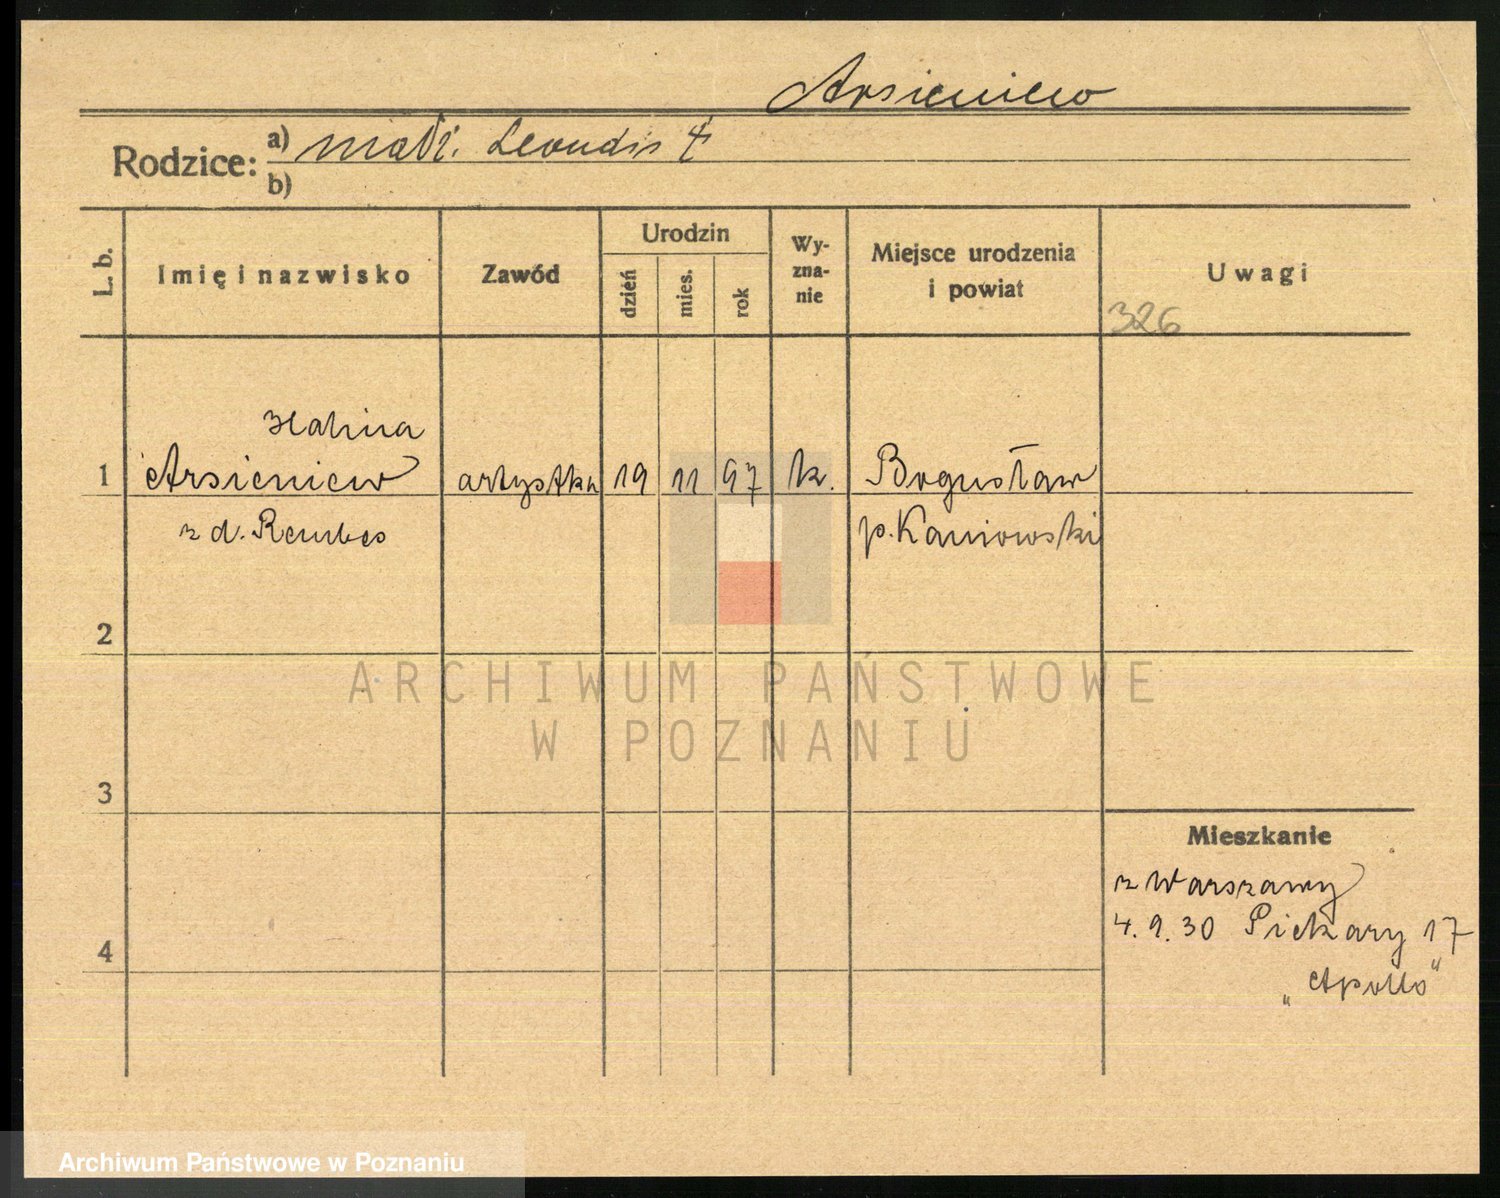 Arsieniew
Rodzice: a) małż. Leonidis †
b)
L. b. Imię i nazwisko Zawód Urodzin dzień mies. rok Wy-zna-nie Miejsce urodzenia i powiat Uwagi
326
Halina
1 Arsieniew artystka 19 11 97 k. Bogusław
z d. p. Kaniowski
2
ARCHIWUM PAŃSTWOWE
W POZNANIU
3
Mieszkanie
z Warszawy
4. 9. 30 Piekary 17
4
„Apollo"
Archiwum Państwowe w Poznaniu